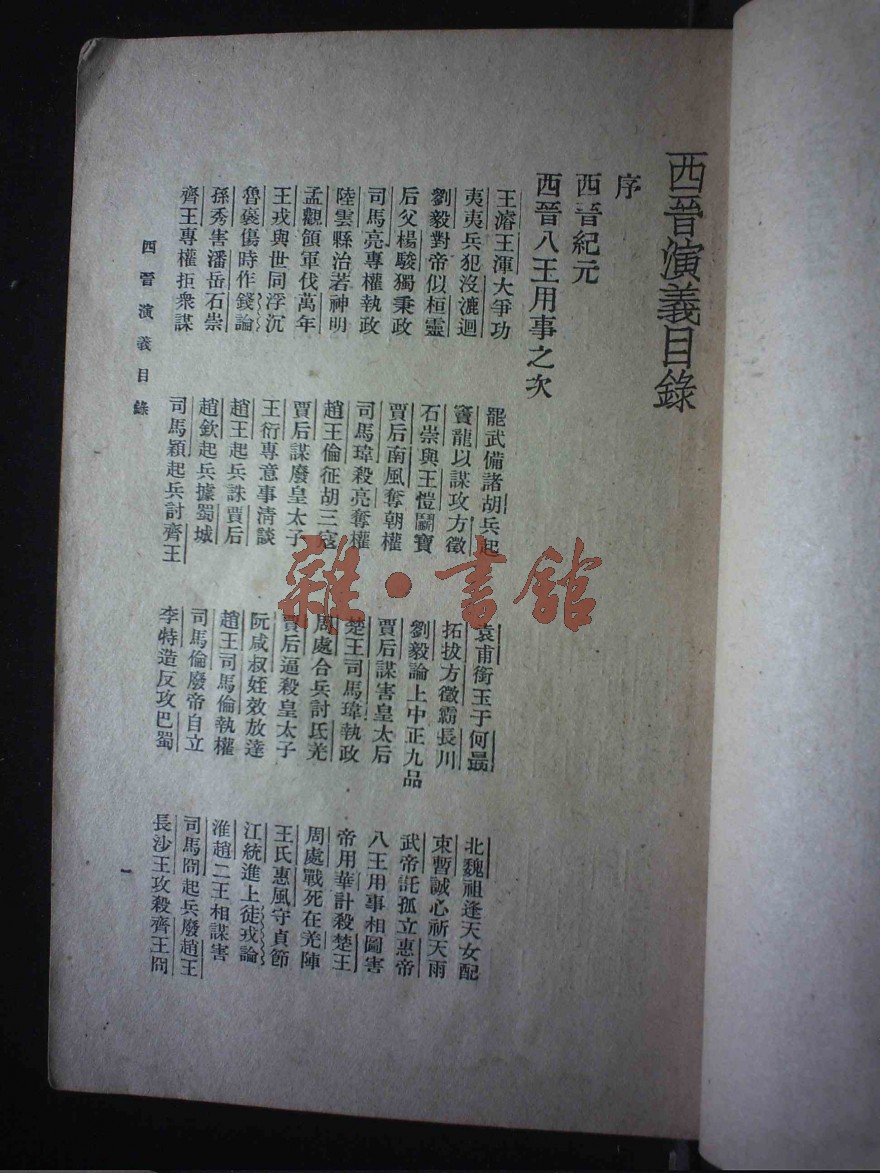 西晉演義目錄
序
西晉紀元
西晉八王用事之次
王濬王渾大爭功　罷武備諸胡兵起　袁甫銜玉于何最　北魏祖逢天女配
夷夷兵犯沒漉迴　竇龍以謀攻方徵　拓拔方徵霸長川　束暫誠心祈天雨
劉毅對帝似桓靈　石崇與王愷鬭寶　劉毅論上中正九品　武帝託孤立惠帝
后父楊駿獨秉政　賈后南風奪朝權　賈后謀害皇太后　八王用事相圖害
司馬亮專權執政　司馬瑋殺亮奪權　楚王司馬瑋執政　帝用華計殺楚王
陸雲縣治若神明　趙王倫征胡三寇　周處合兵討氐羌　周處戰死在羌陣
孟觀領軍伐萬年　賈后謀廢皇太子　賈后逼殺皇太子　王氏惠風守貞節
王戎與世同浮沉　王衍專意事清談　阮咸叔姪效放達　江統進上徒戎論
魯褒傷時作錢論　趙王起兵誅賈后　趙王司馬倫執權　淮趙二王相謀害
孫秀害潘岳石崇　趙欽起兵據蜀城　司馬倫廢帝自立　司馬冏起兵廢趙王
齊王專權拒衆謀　司馬穎起兵討齊王　李特造反攻巴蜀　長沙王攻殺齊王冏
西晉演義目錄　一
雜·書館